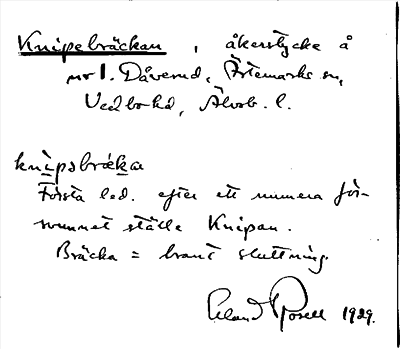 Knipebräckan, åkerstycke å
nr 1. Dåverud, Ärtemarks sn,
Vedbo hd, Älvsb. l.
knìpəbræka
Första led. efter ett numera för-
svunnet ställe Knipan.
Bräcka = brant sluttning.
Erland Rosell 1929.